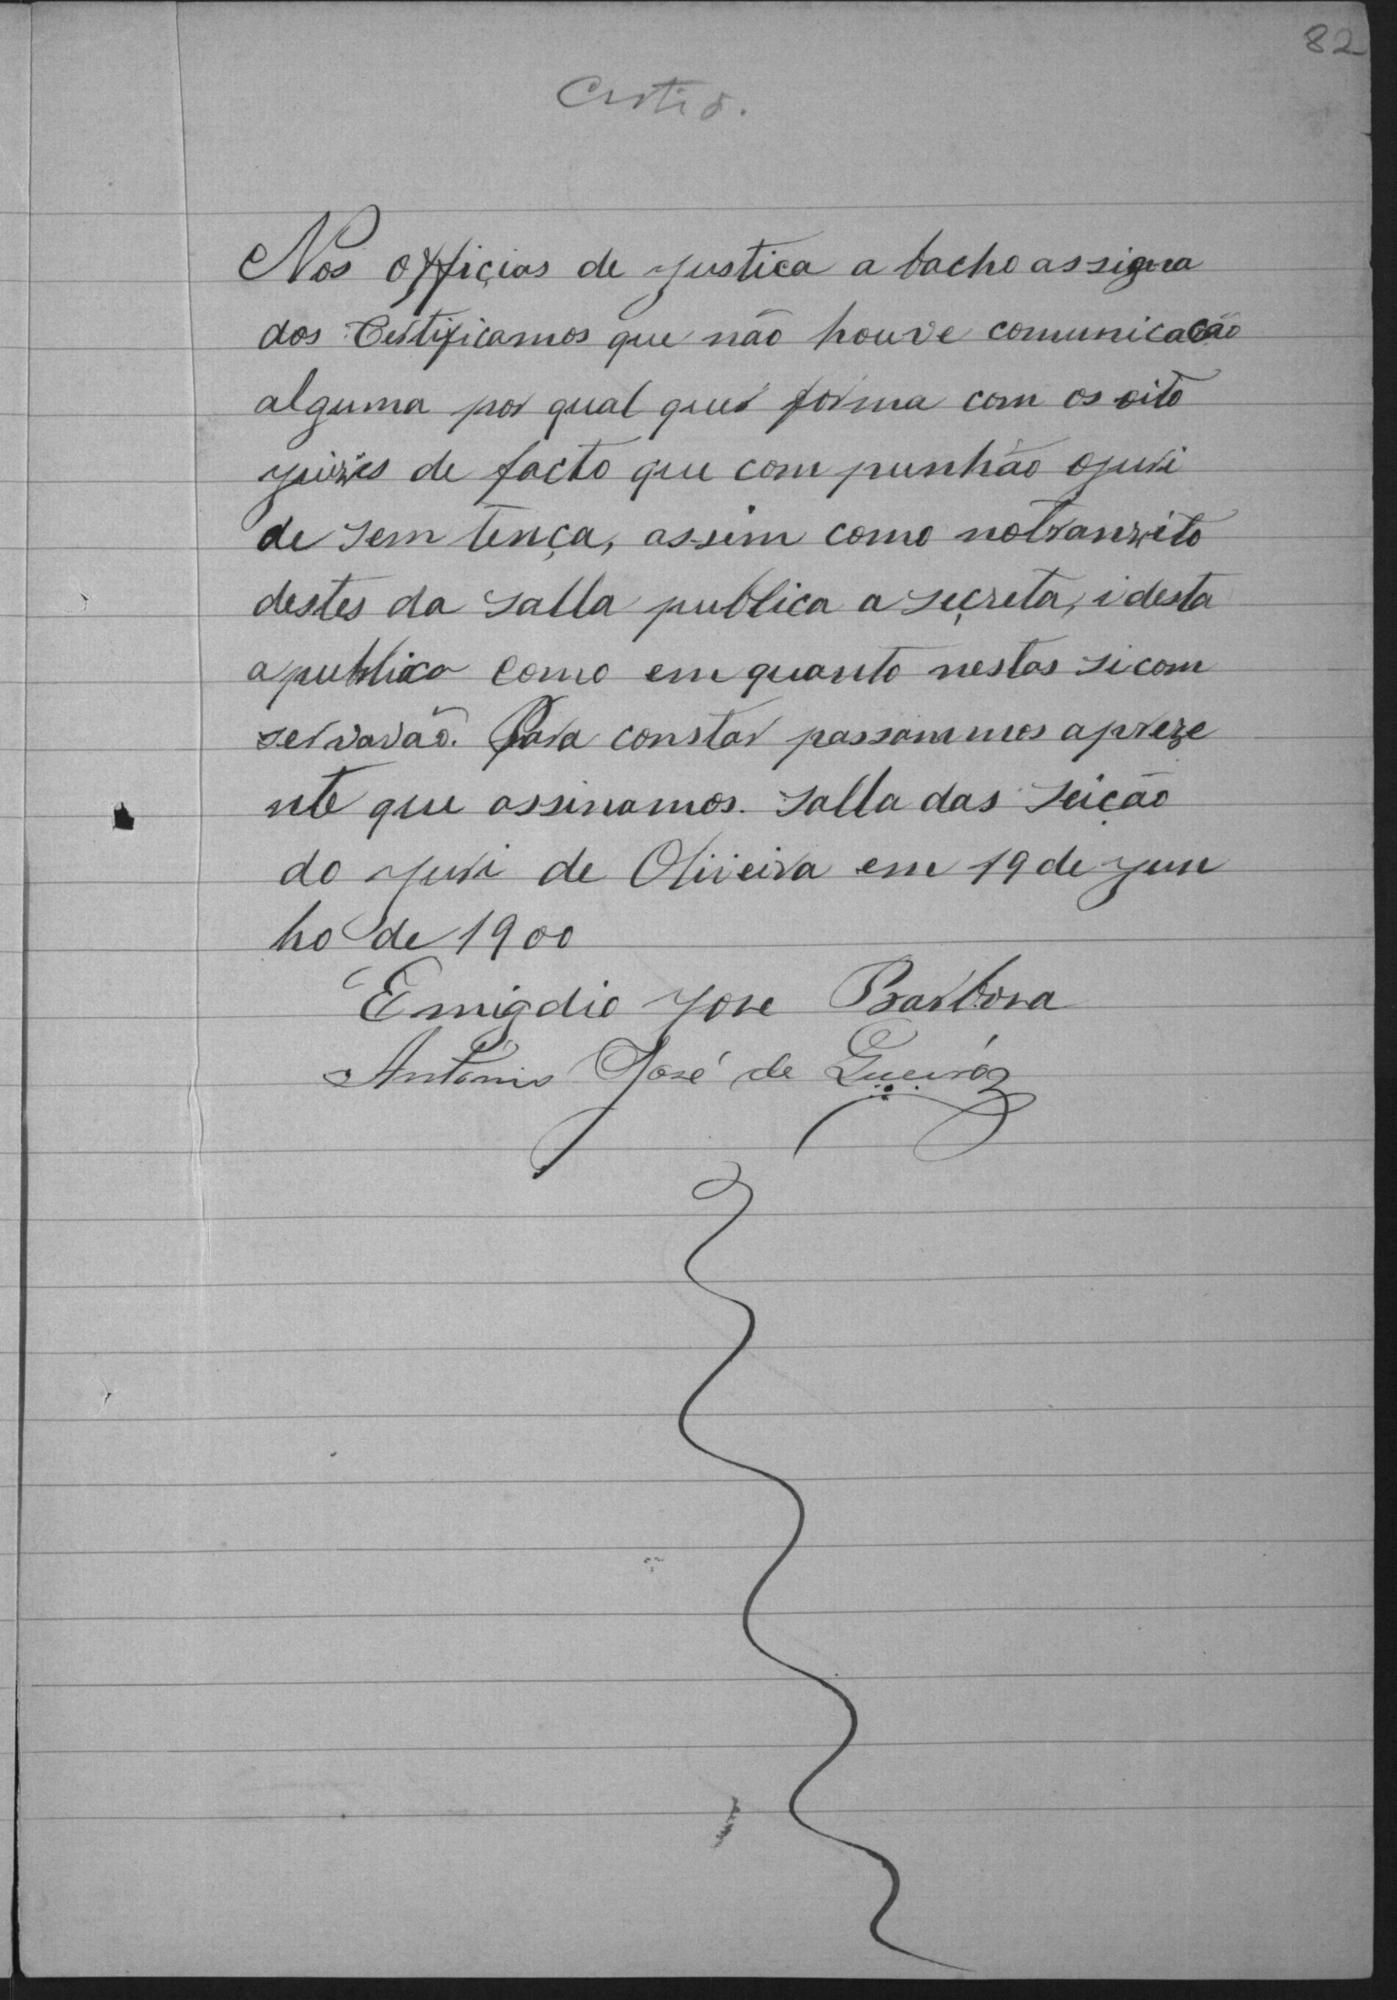 82
Nos officias de justica a bacho assigna
dos Certificamos que não houve comunicacão
alguma por qual quer forma com os oito
juizes de facto que com punhão ojuri
de sem tença, assim como notranzito
destes da salla publica a secreta, i desta
a publica como em quanto nestas si com
servarão. Para constar passammos apreze
nte que assinamos. Salla das seição
do juri de Oliveira em 19 de jun
ho de 1900
Emigdio Jose Barboza
Antonio José de Queiróz